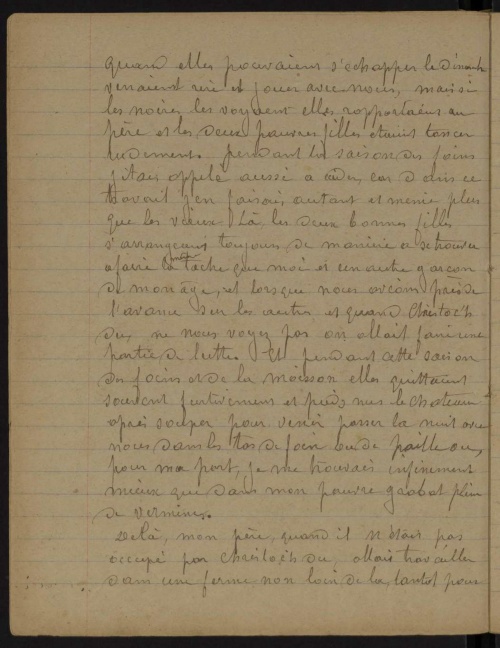 quand elles pouvaient s'echapper le dimanche
venaient rire et jouer avec nous, mais si
les noires les voyaient elles rapportaient au
père et les deux pauvres filles étaient tancer
rudement. pendant la saison des foins
j'étais appelé aussi à aider, car dans ce
travail j'en faisais autant et meme plus
que les vieux. Là les deux bonnes filles
s'arrangeaient toujours de manière a se trouver
a faire la meme tâche que moi et un autre garçon
de mon age, et lorsque nous avions pris de
l'avance sur les autres et quand Christoc'h
du, ne nous voyez pas on allait faire une
partie de lutte. Et pendant cette saison
des foins et de la moisson elles quittaient
souvent furtivement et pieds nus le chateau
après souper pour venir passer la nuit avec
nous dans les tas de foin ou de paille ou,
pour ma part, je me trouvais infiniment
mieux que dans mon pauvre grabat plein
de vermines.
Delà, mon père, quand il n'étais pas
occupé par Christoc'h du, allais travailler
dans une ferme non loin de la, tantot pour